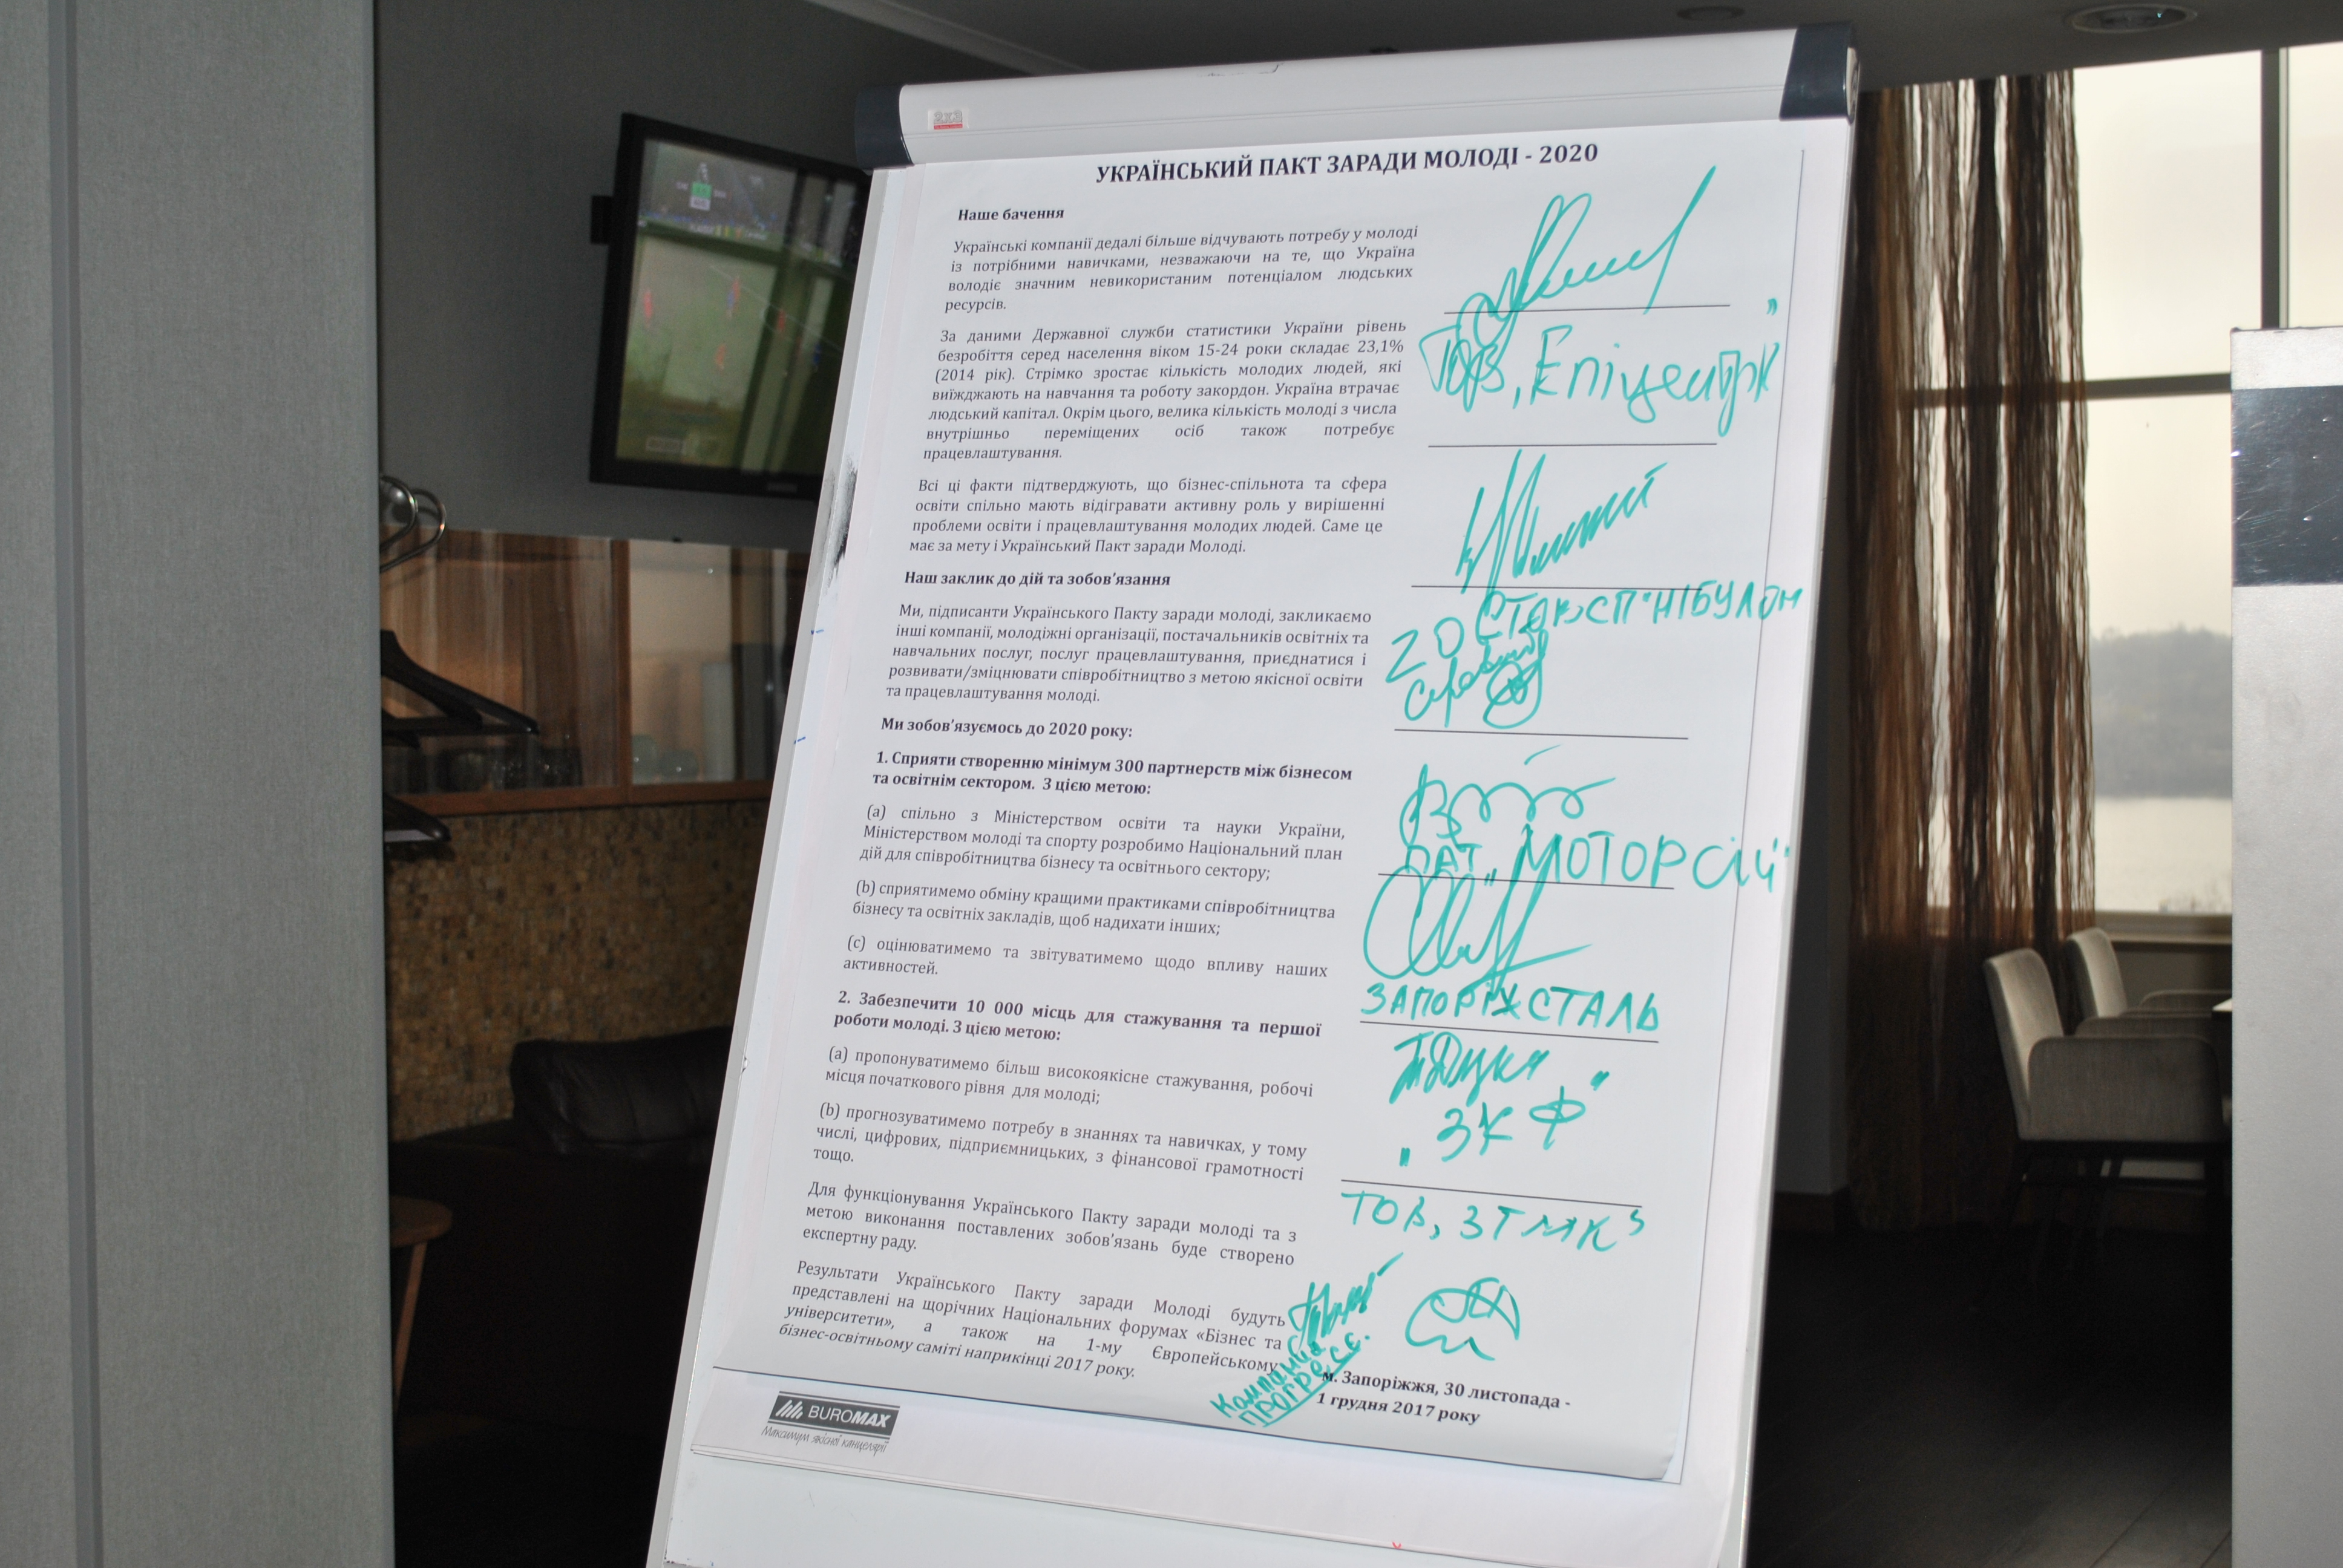 2x3
УКРАЇНСЬКИЙ ПАКТ ЗАРАДИ МОЛОДІ - 2020
Наше бачення
Українські компанії дедалі більше відчувають потребу у молоді
із потрібними навичками, незважаючи на те, що Україна
володіє значним невикористаним потенціалом людських
ресурсів.
За даними Державної служби статистики України рівень
безробіття серед населення віком 15-24 роки складає 23,1%
(2014 рік). Стрімко зростає кількість молодих людей, які
виїжджають на навчання та роботу закордон. Україна втрачає
людський капітал. Окрім цього, велика кількість молоді з числа
внутрішньо переміщених осіб також потребує
працевлаштування.
Всі ці факти підтверджують, що бізнес-спільнота та сфера
освіти спільно мають відігравати активну роль у вирішенні
проблеми освіти і працевлаштування молодих людей. Саме це
має за мету і Український Пакт заради Молоді.
Наш заклик до дій та зобов'язання
Ми, підписанти Українського Пакту заради молоді, закликаємо
інші компанії, молодіжні організації, постачальників освітніх та
навчальних послуг, послуг працевлаштування, приєднатися і
розвивати/зміцнювати співробітництво з метою якісної освіти
та працевлаштування молоді.
Ми зобов'язуємось до 2020 року:
1. Сприяти створенню мінімум 300 партнерств між бізнесом
та освітнім сектором. З цією метою:
(a) спільно з Міністерством освіти та науки України,
Міністерством молоді та спорту розробимо Національний план
дій для співробітництва бізнесу та освітнього сектору;
(b) сприятимемо обміну кращими практиками співробітництва
бізнесу та освітніх закладів, щоб надихати інших;
(c) оцінюватимемо та звітуватимемо щодо впливу наших
активностей.
2. Забезпечити 10 000 місць для стажування та першої
роботи молоді. З цією метою:
(a) пропонуватимемо більш високоякісне стажування, робочі
місця початкового рівня для молоді;
(b) прогнозуватимемо потребу в знаннях та навичках, у тому
числі, цифрових, підприємницьких, з фінансової грамотності
тощо.
Для функціонування Українського Пакту заради молоді та з
метою виконання поставлених зобов'язань буде створено
експертну раду.
Результати Українського Пакту заради Молоді будуть
представлені на щорічних Національних форумах «Бізнес та
університети», а також на 1-му Європейському
бізнес-освітньому саміті наприкінці 2017 року.
ТОВ „Епіцентр К"
СП "НІБУЛОН
ПАТ „МОТОР СІЧ"
ЗАПОРІЖСТАЛЬ
„ЗКФ"
ТОВ „ЗТМК"
Компанія
ПРОГРЕСС.
м. Запоріжжя, 30 листопада -
1 грудня 2017 року
BUROMAX
Максимум якісної канцелярії